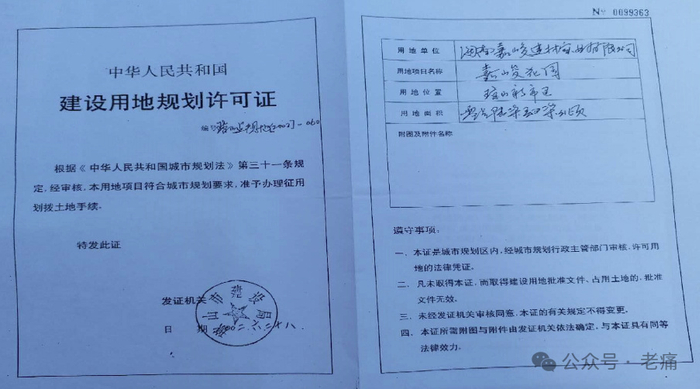 中华人民共和国
建设用地规划许可证
编号
根据《中华人民共和国城市规划法》第三十一条规
定，经审核，本用地项目符合城市规划要求，准予办理征用
划拨土地手续。
特发此证
发证机关
日 期
山市建设局
№ 0099363
用地单位
用地项目名称 嘉峻花园
用地位置
用地面积
附图及附件名称
遵守事项：
一、本证是城市规划区内，经城市规划行政主管部门审核，许可用
地的法律凭证。
二、凡未取得本证，而取得建设用地批准文件、占用土地的，批准
文件无效。
三、未经发证机关审核同意，本证的有关规定不得变更。
四、本证所需附图与附件由发证机关依法确定，与本证具有同等
法律效力。
公众号·老痛